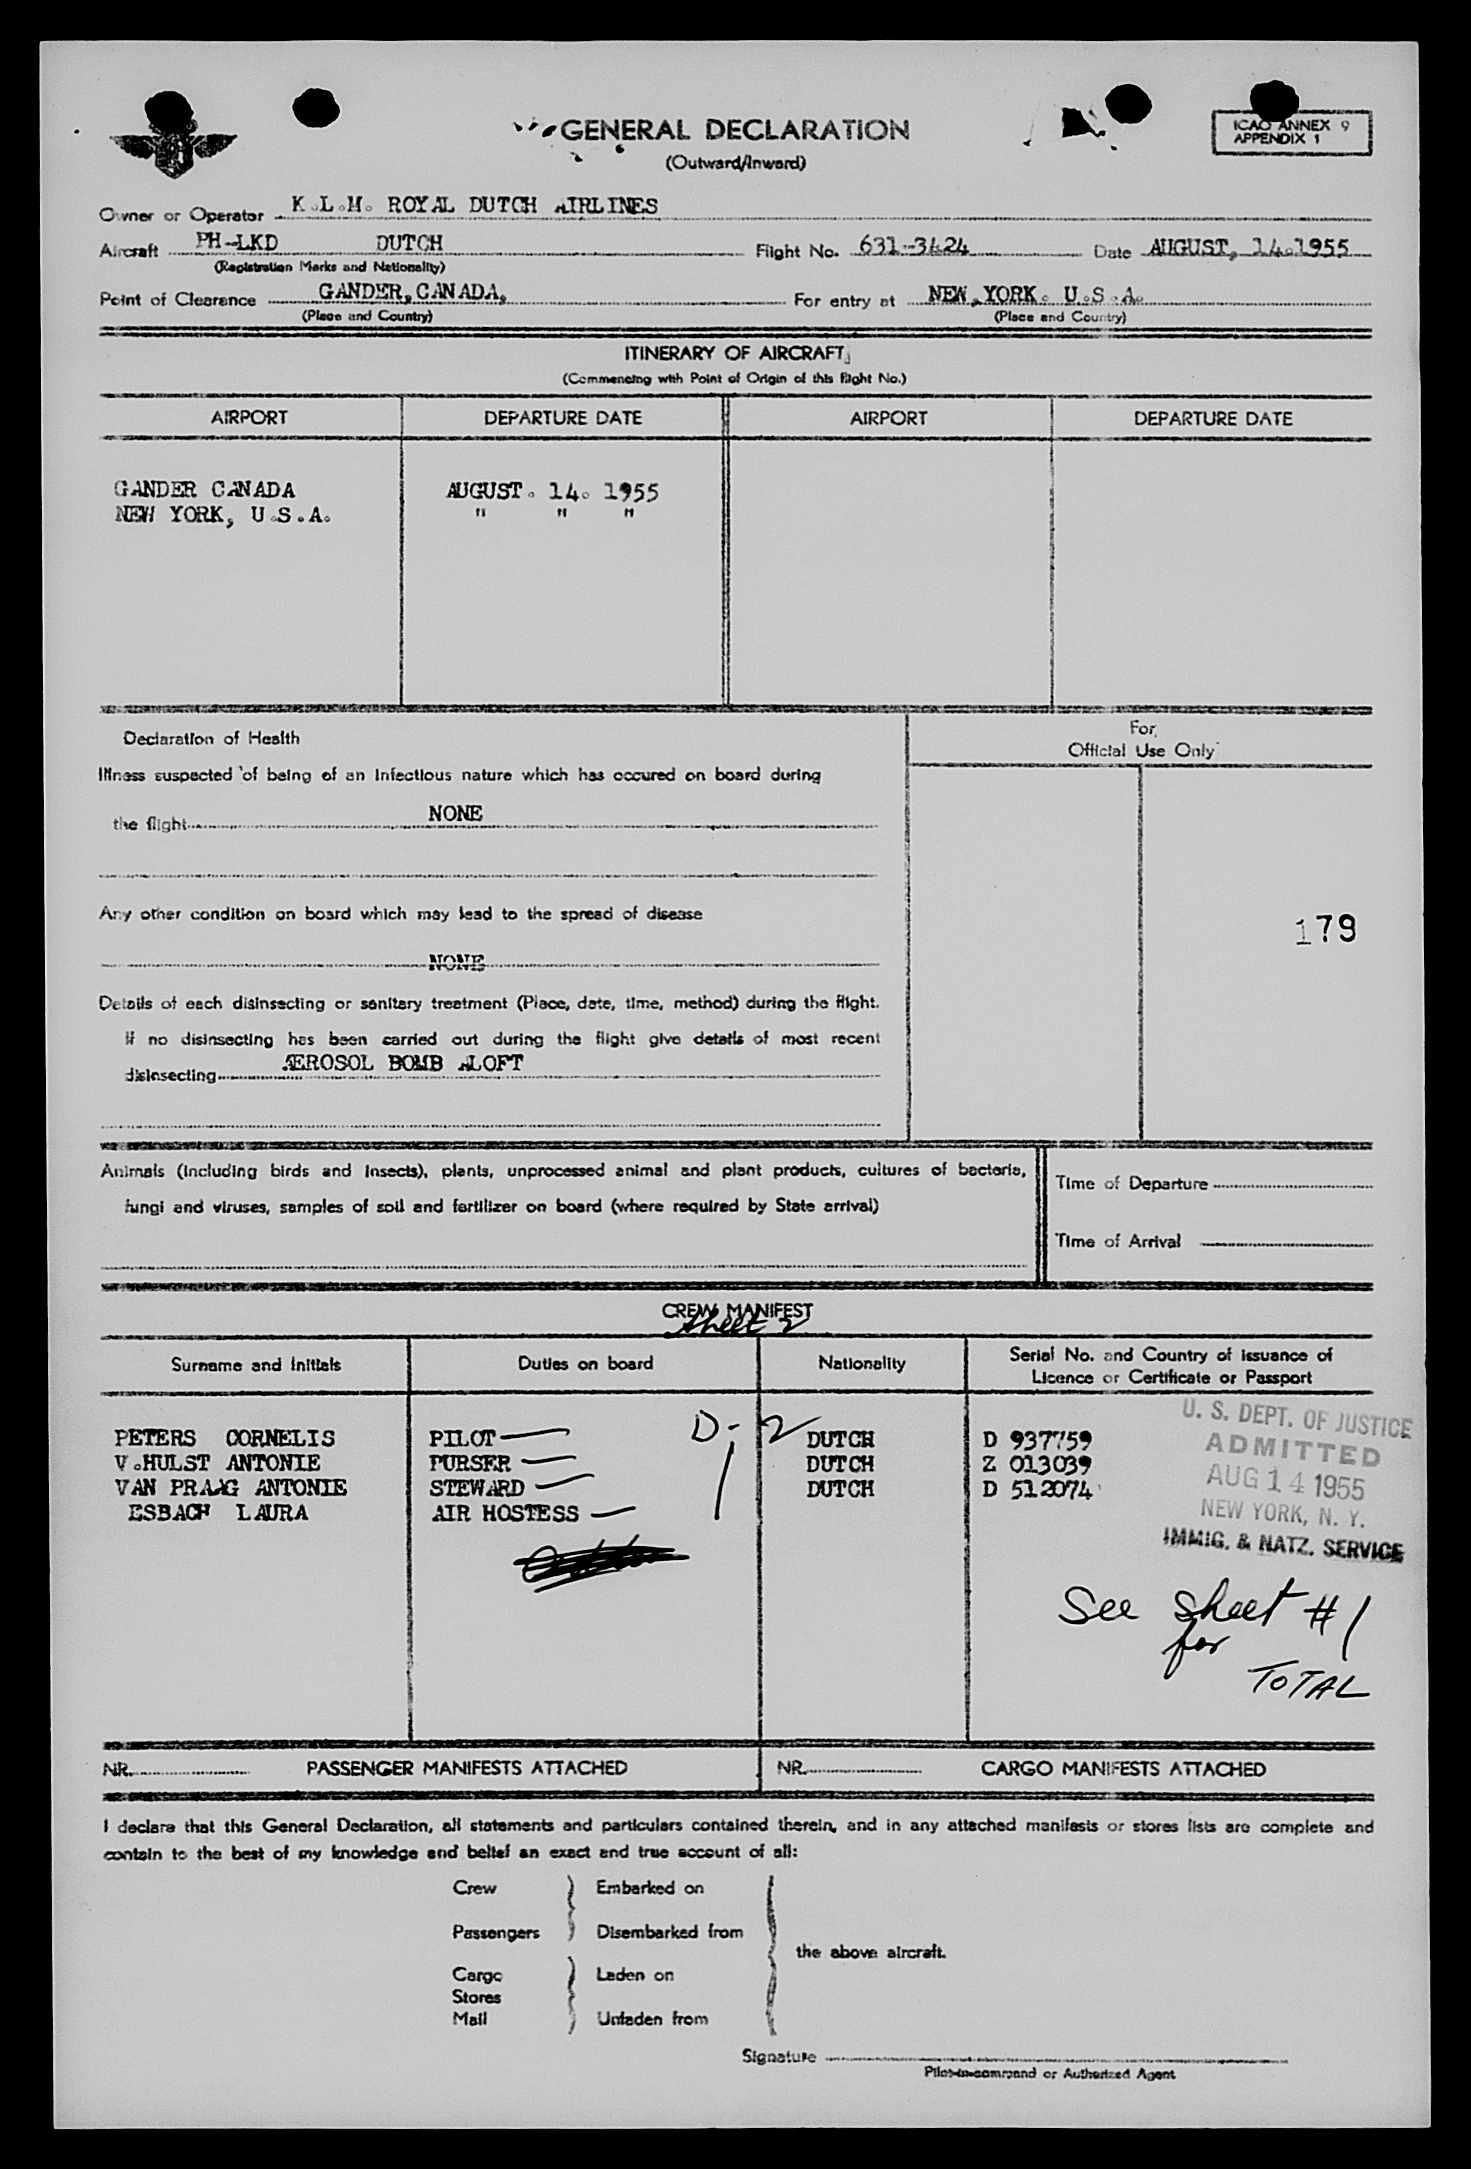 GENERAL DECLARATION
(Outward/Inward)
ICAO ANNEX 9
APPENDIX 1
Owner or Operator K.L.M. ROYAL DUTCH AIRLINES
Aircraft PH-LKD DUTCH Flight No. 631-3424 Date AUGUST, 14.1955
(Registration Marks and Nationality)
Point of Clearance GANDER, CANADA, For entry at NEW, YORK. U.S.A.
(Place and Country) (Place and Country)
ITINERARY OF AIRCRAFT
(Commencing with Point of Origin of this flight No.)
AIRPORT DEPARTURE DATE AIRPORT DEPARTURE DATE
GANDER CANADA AUGUST. 14. 1955
NEW YORK, U.S.A. " " "
Declaration of Health
For
Official Use Only
Illness suspected of being of an infectious nature which has occured on board during
the flight NONE
Any other condition on board which may lead to the spread of disease
179
NONE
Details of each disinsecting or sanitary treatment (Place, date, time, method) during the flight.
If no disinsecting has been carried out during the flight give details of most recent
disinsecting AEROSOL BOMB ALOFT
Animals (including birds and insects), plants, unprocessed animal and plant products, cultures of bacteria,
fungi and viruses, samples of soil and fertilizer on board (where required by State arrival)
Time of Departure
Time of Arrival
CREW MANIFEST
Sheet 2
Surname and Initials Duties on board Nationality Serial No. and Country of issuance of
Licence or Certificate or Passport
PETERS CORNELIS PILOT D-2 DUTCH D 937759
V.HULST ANTONIE PURSER 1 DUTCH Z 013039
VAN PRAAG ANTONIE STEWARD DUTCH D 512074
ESBACH LAURA AIR HOSTESS
U. S. DEPT. OF JUSTICE
ADMITTED
AUG 14 1955
NEW YORK, N. Y.
IMMIG. & NATZ. SERVICE
See sheet #1
for
TOTAL
NR. PASSENGER MANIFESTS ATTACHED NR. CARGO MANIFESTS ATTACHED
I declare that this General Declaration, all statements and particulars contained therein, and in any attached manifests or stores lists are complete and
contain to the best of my knowledge and belief an exact and true account of all:
Crew Embarked on
Passengers Disembarked from
the above aircraft.
Cargo Laden on
Stores
Mail Unladen from
Signature
Pilot-in-command or Authorized Agent